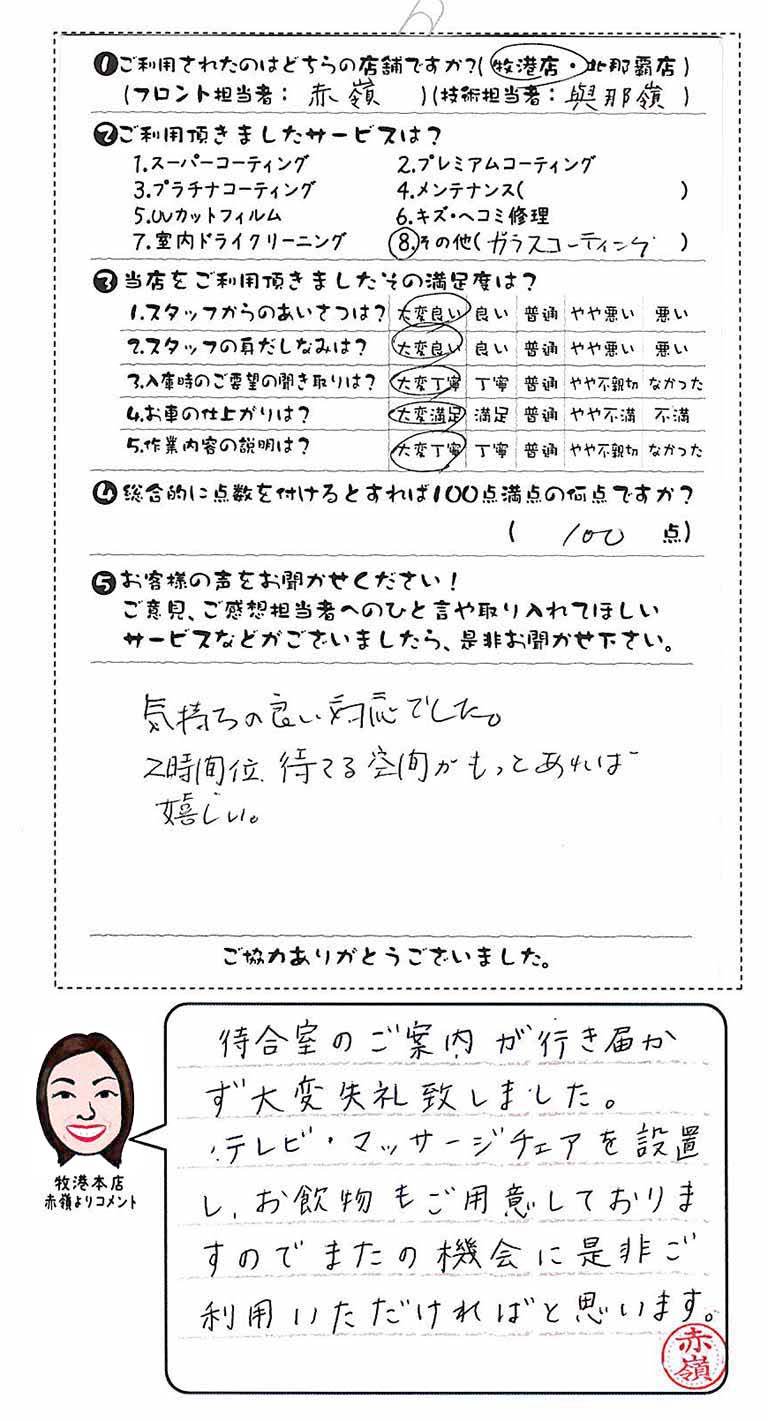 ❶ご利用されたのはどちらの店舗ですか?(牧港店・北那覇店)
(フロント担当者：赤嶺)(技術担当者：與那嶺)
❷ご利用頂きましたサービスは?
1.スーパーコーティング 2.プレミアムコーティング
3.プラチナコーティング 4.メンテナンス( )
5.UVカットフィルム 6.キズ・ヘコミ修理
7.室内ドライクリーニング 8.その他(ガラスコーティング)
❸当店をご利用頂きましたその満足度は?
1.スタッフからのあいさつは? 大変良い 良い 普通 やや悪い 悪い
2.スタッフの身だしなみは? 大変良い 良い 普通 やや悪い 悪い
3.入庫時のご要望の聞き取りは? 大変丁寧 丁寧 普通 やや不親切 なかった
4.お車の仕上がりは? 大変満足 満足 普通 やや不満 不満
5.作業内容の説明は? 大変丁寧 丁寧 普通 やや不親切 なかった
❹総合的に点数を付けるとすれば100点満点の何点ですか?
(100点)
❺お客様の声をお聞かせください!
ご意見、ご感想担当者へのひと言や取り入れてほしい
サービスなどがございましたら、是非お聞かせ下さい。
気持ちの良い対応でした。
2時間位、待てる空間がもっとあれば
嬉しい。
ご協力ありがとうございました。
待合室のご案内が行き届か
ず大変失礼致しました。
テレビ・マッサージチェアを設置
し、お飲物もご用意しておりま
すのでまたの機会に是非ご
利用いただければと思います。
赤嶺
牧港本店
赤嶺よりコメント